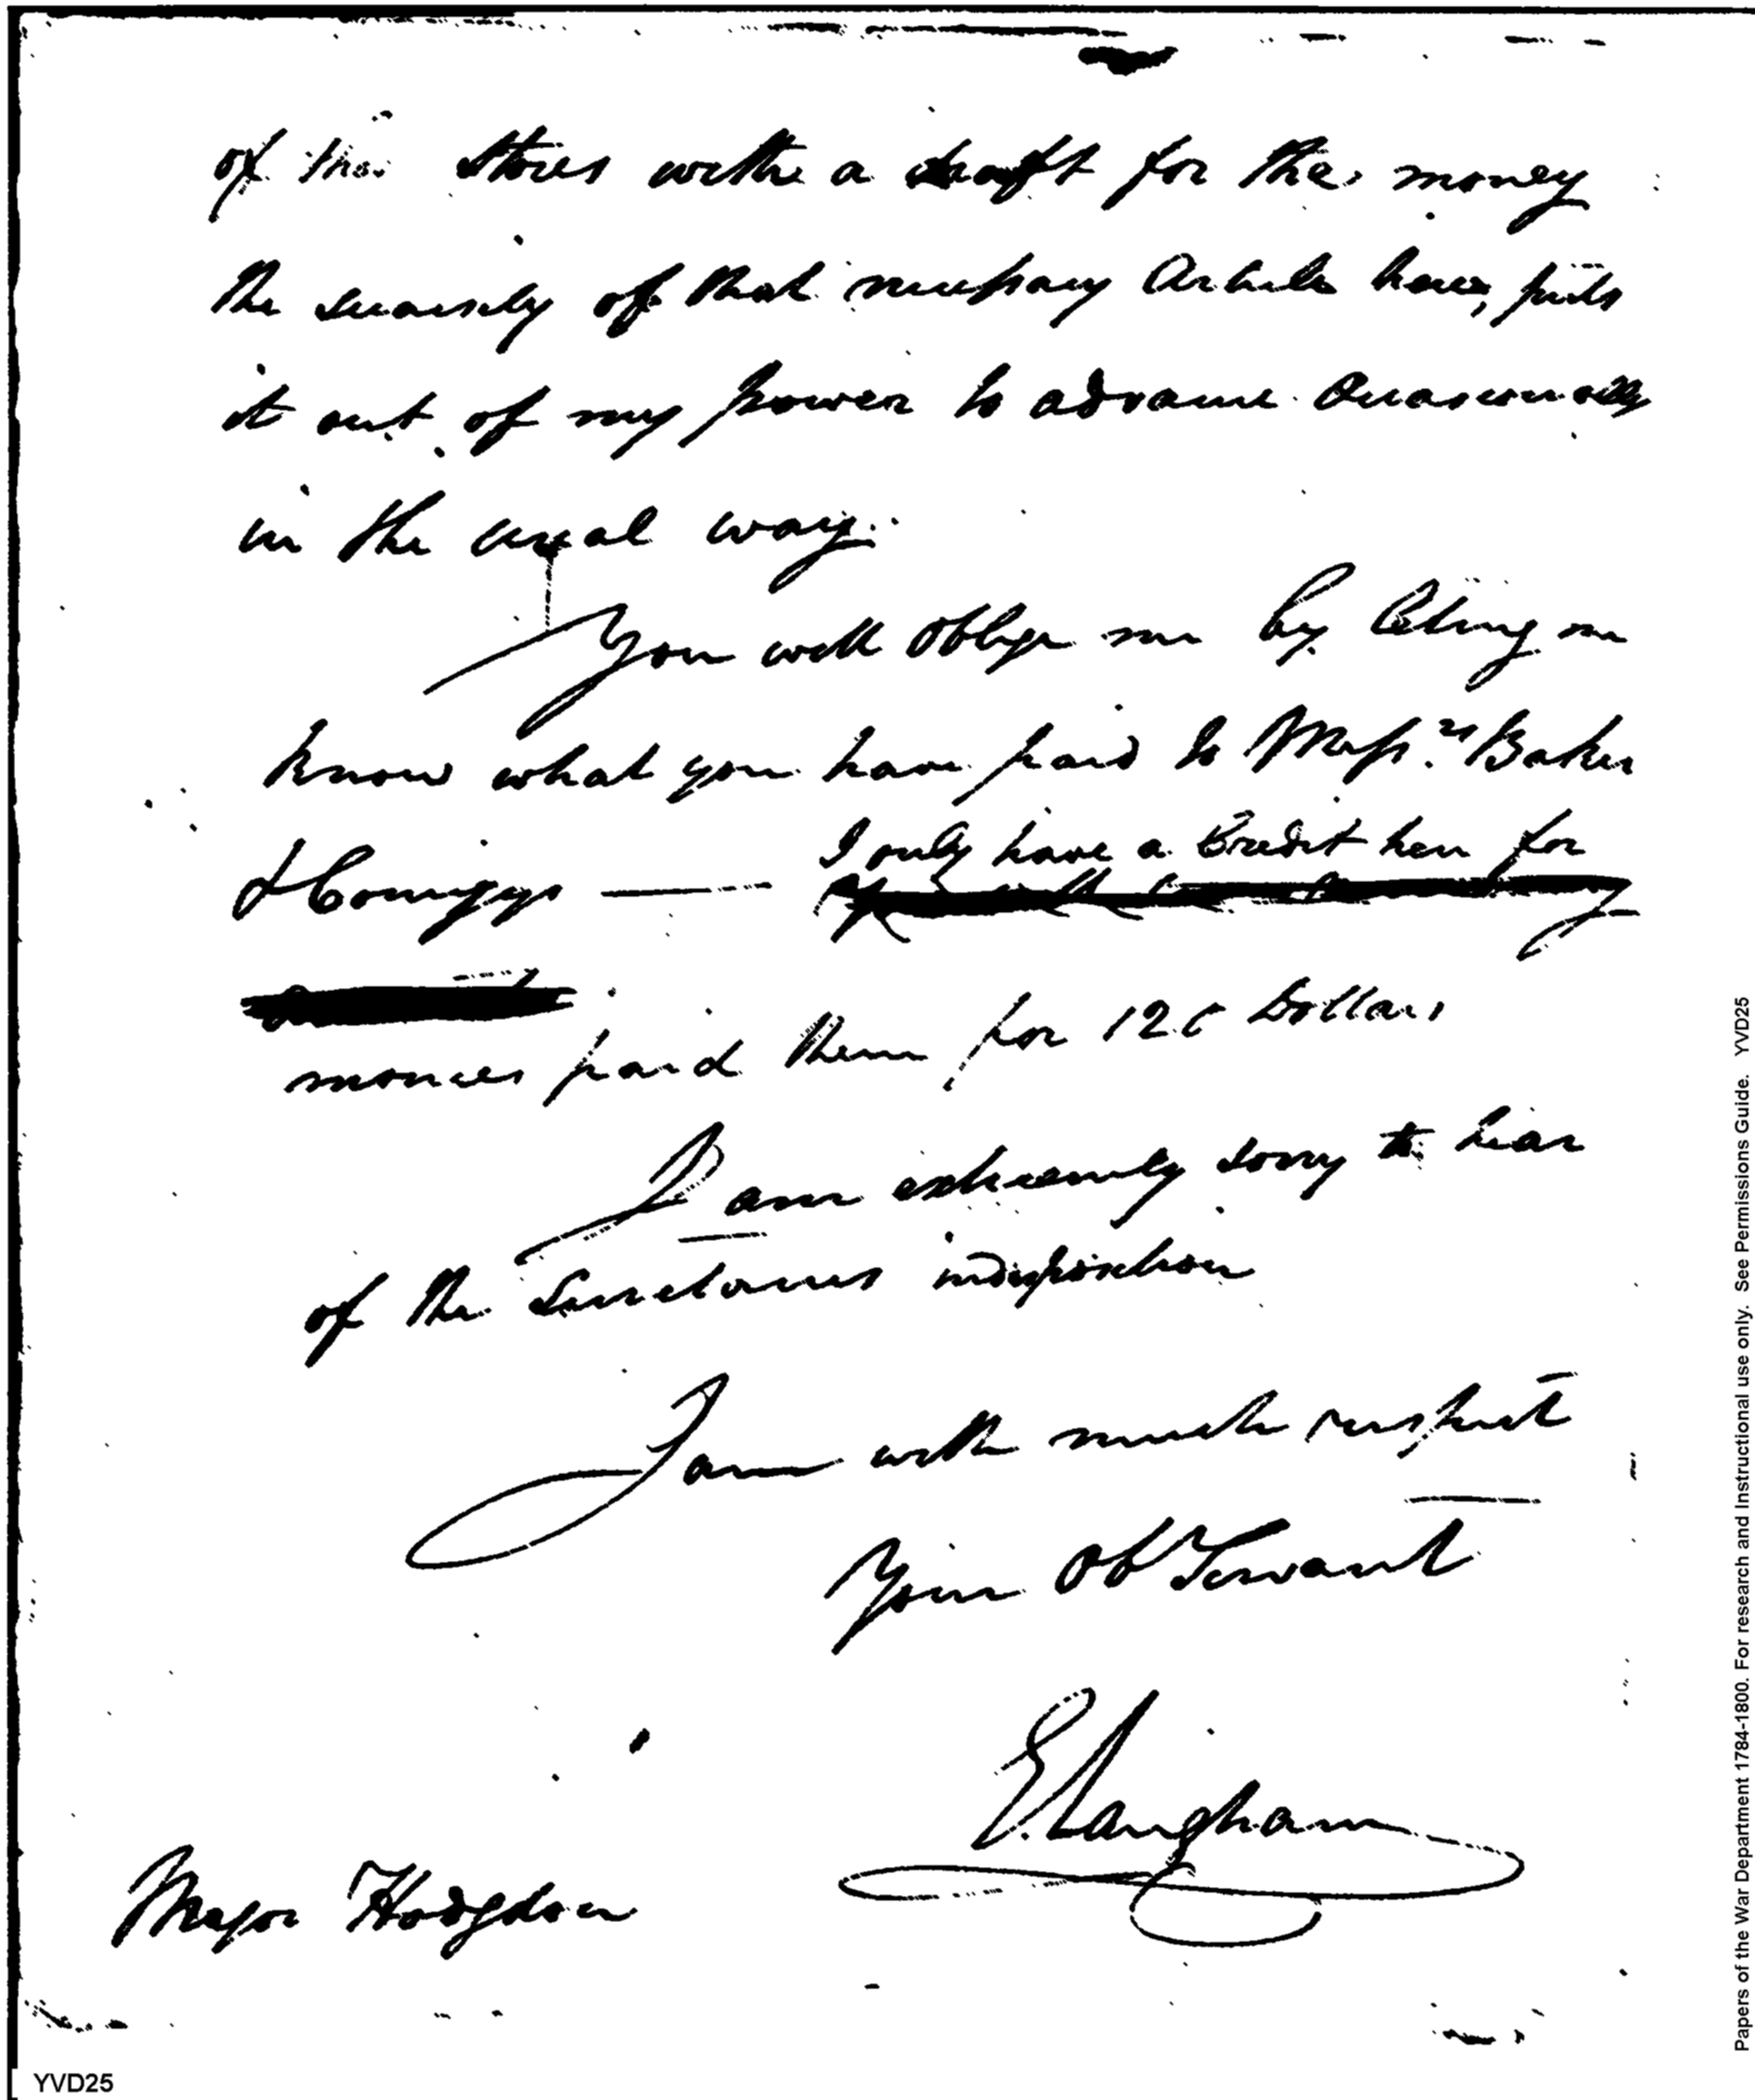 of the Stores with a draft for the money
the scarsely of that necessary Article here, puts
it out of my power to advance Occasionally
in the usual way.
You will Oblige me by leting me
know what you have paid to Messrs Baker
& Comigys — I only have a Credit here for
monies paid them, for 126 Dollars
I am extreemly sorry to hear
of the Secretaries indisposition
I am with much respect
Your Ob Servant
E. Vaughan
Major Hodgdon
YVD25
Papers of the War Department 1784-1800. For research and Instructional use only. See Permissions Guide. YVD25